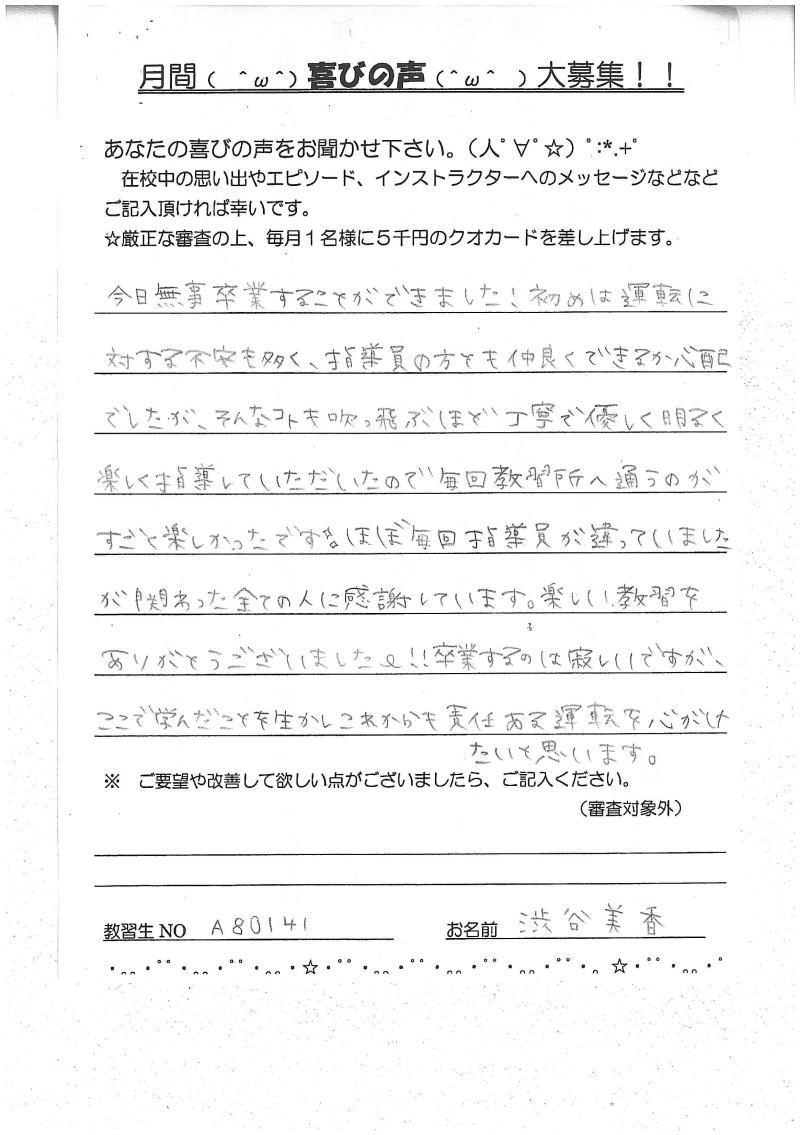 月間( ^ω^)喜びの声(^ω^ )大募集!!
あなたの喜びの声をお聞かせ下さい。(人゜∀゜☆)゜:*.+゜
在校中の思い出やエピソード、インストラクターへのメッセージなどなど
ご記入頂ければ幸いです。
☆厳正な審査の上、毎月1名様に5千円のクオカードを差し上げます。
今日無事卒業することができました!初めは運転に
対する不安も多く、指導員の方とも仲良くできるか心配
でしたが、そんなコトも吹っ飛ぶほど丁寧で優しく明るく
楽しく指導していただいたので毎回教習所へ通うのが
すごく楽しかったです。ほぼ毎回指導員が違っていました
が関わった全ての人に感謝しています。楽しい教習を
ありがとうございました!!卒業するのは寂しいですが、
ここで学んだことを生かしこれからも責任ある運転を心がけ
たいと思います。
※ ご要望や改善して欲しい点がございましたら、ご記入ください。
(審査対象外)
教習生NO A80141 お名前 渋谷美香